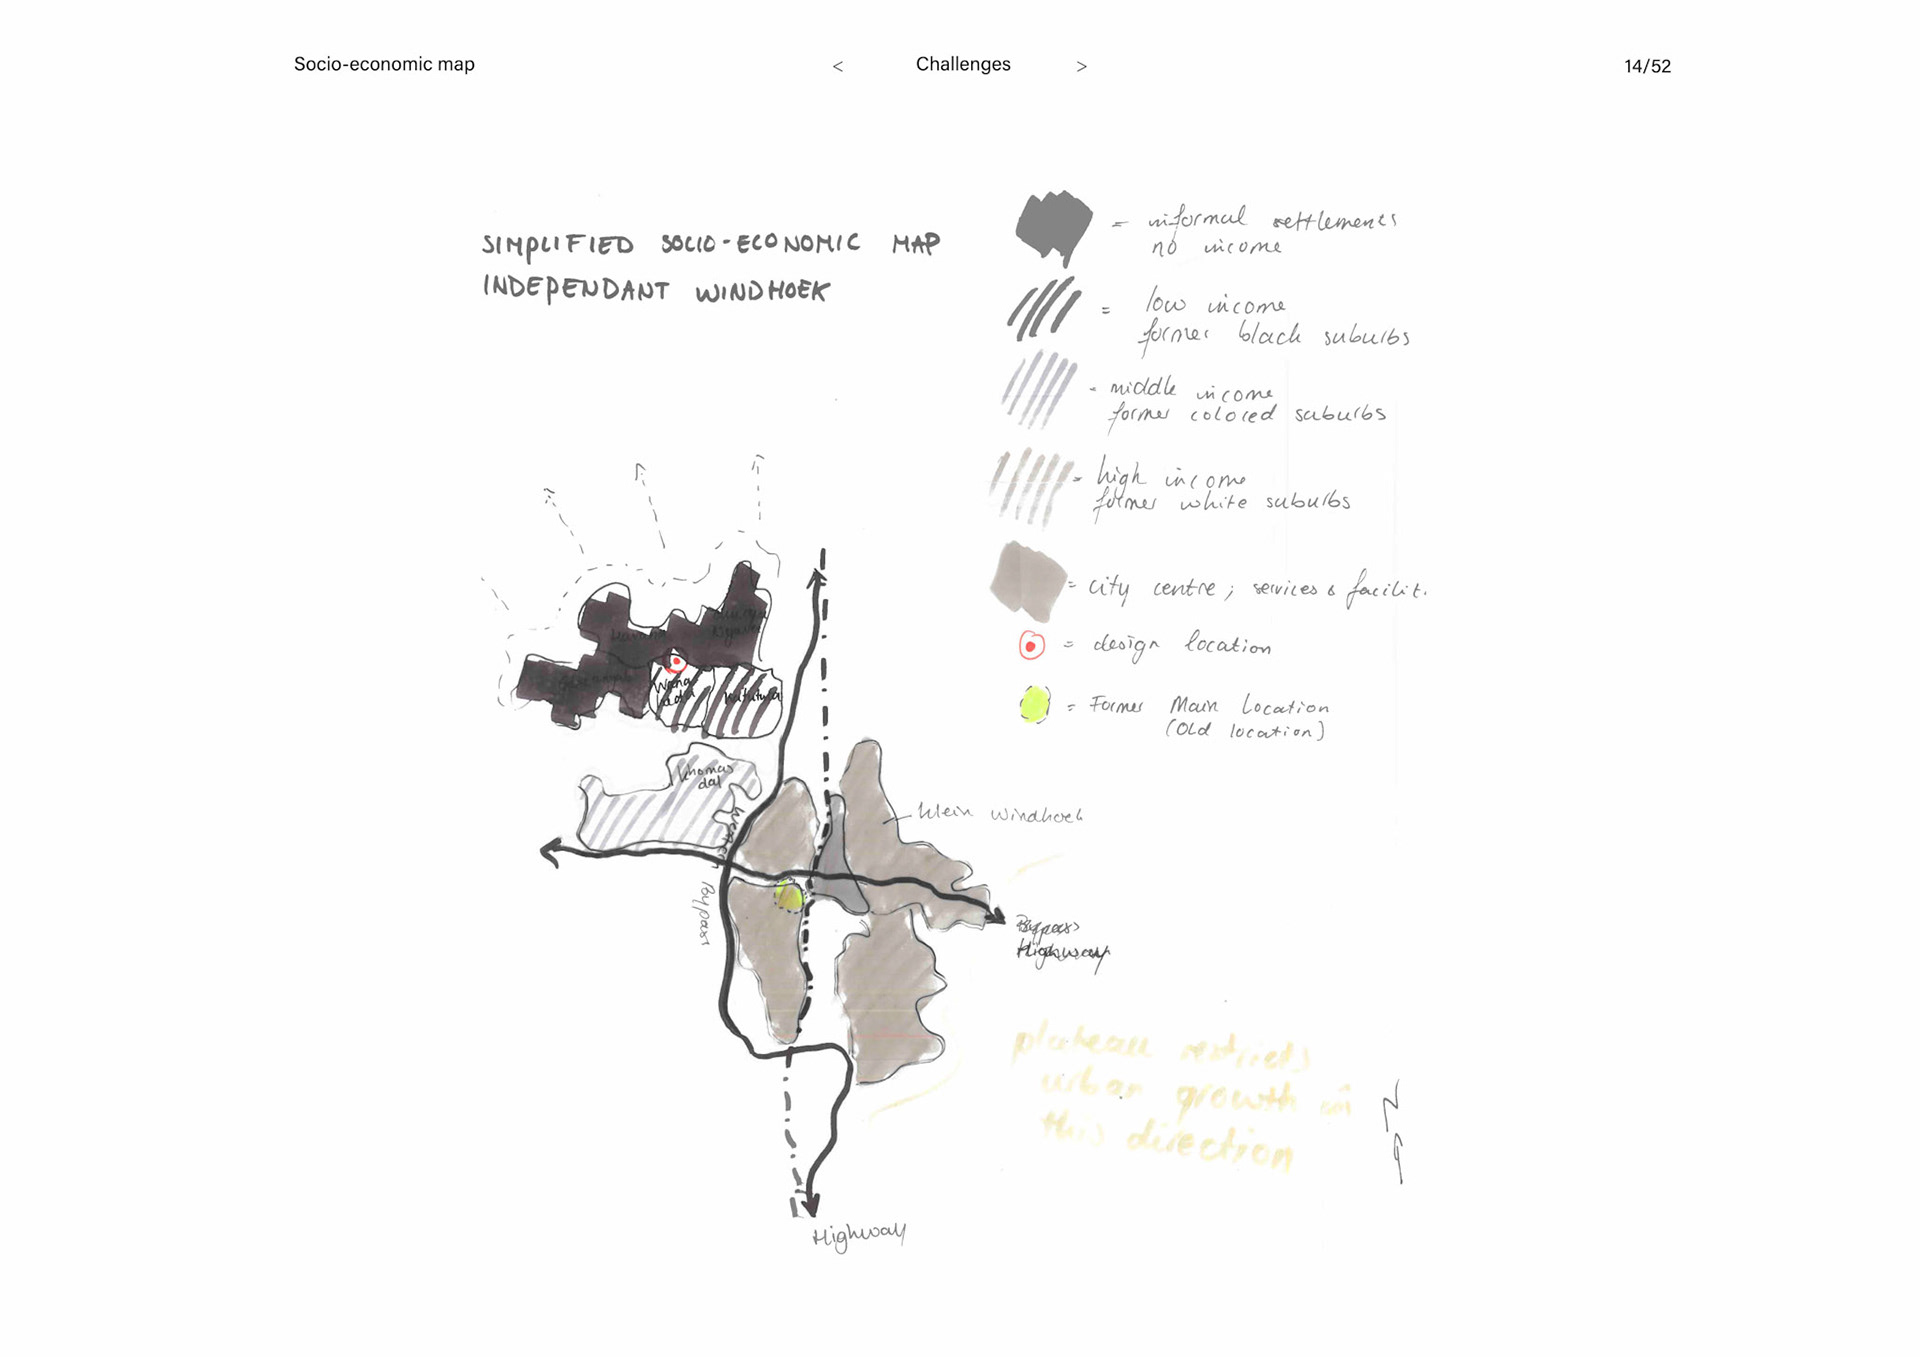 Socio-economic map
<
Challenges
>
14/52
SIMPLIFIED SOCIO-ECONOMIC MAP
INDEPENDANT WINDHOEK
= informal settlements
no income
= low income
former black suburbs
= middle income
former colored suburbs
= high income
former white suburbs
= city centre; services & facilit.
= design location
= Former Main Location
(Old location)
Havana
Wana
heda
Katutura
Khomas
dal
Western Bypass
Klein Windhoek
Bypass
Highway
plateau restricts
urban growth in
this direction
N
Highway